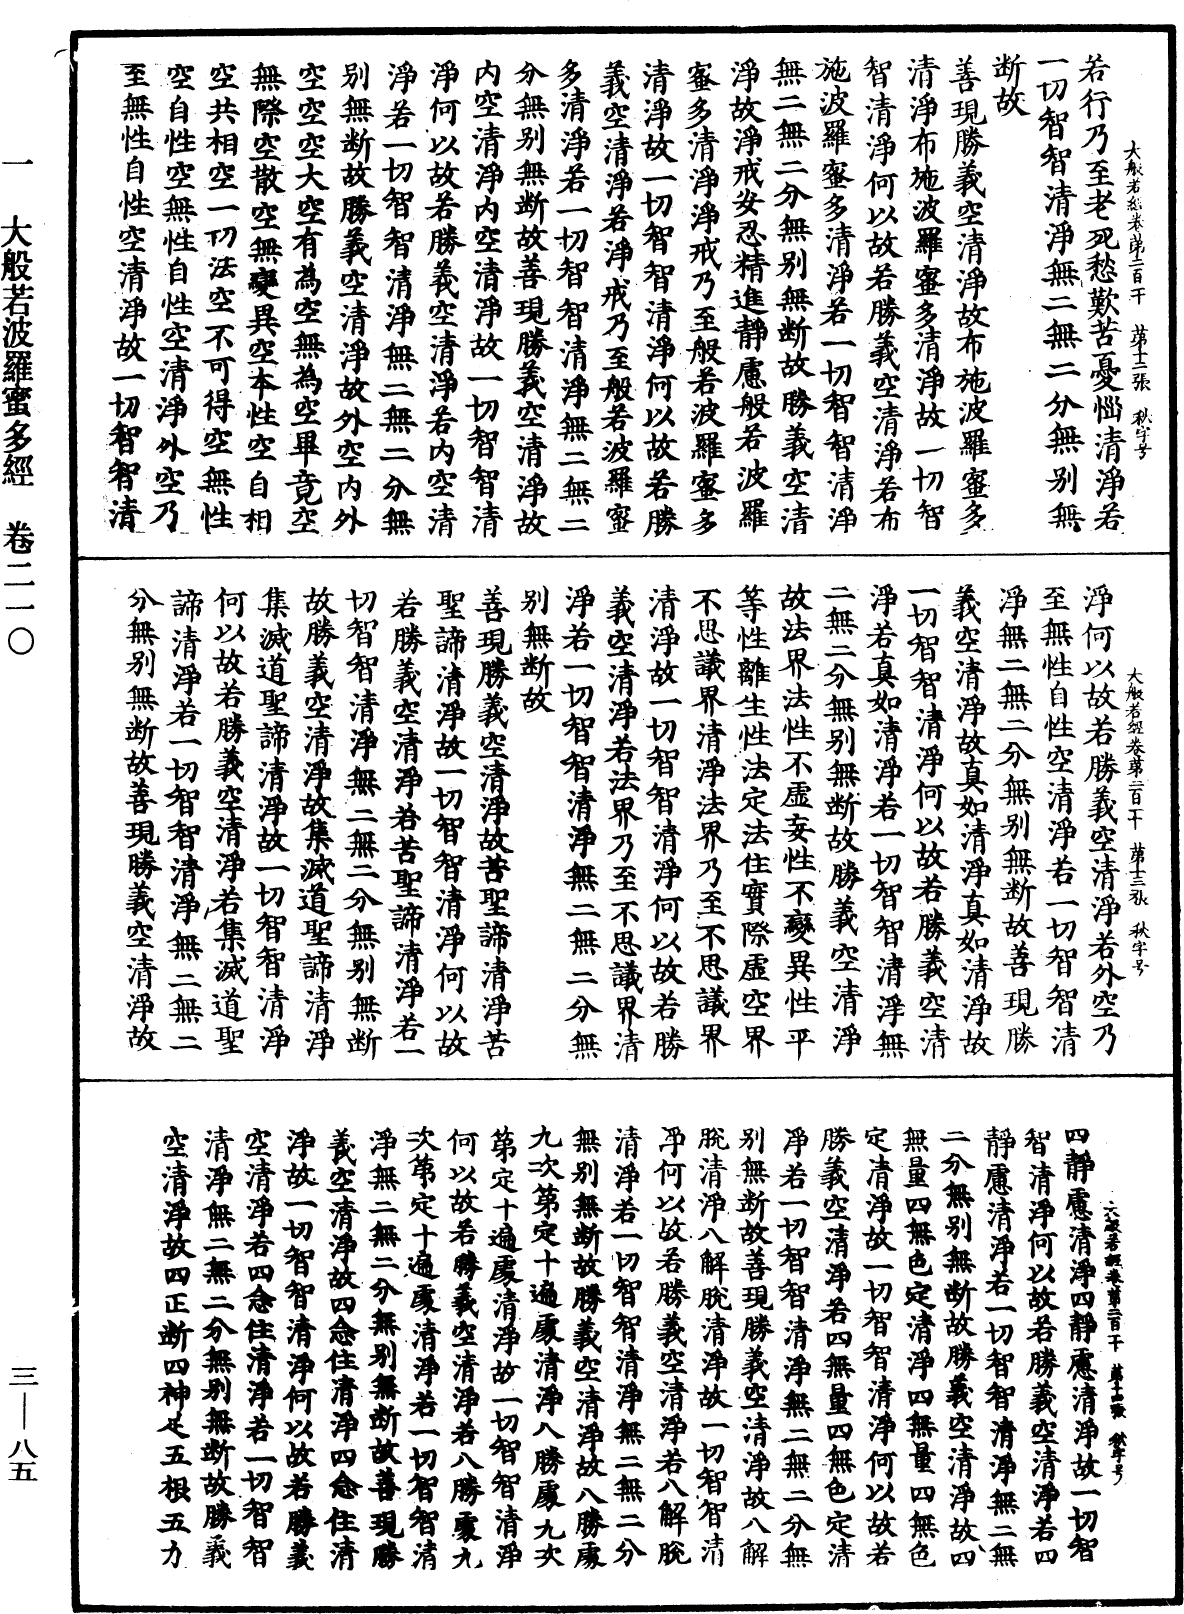 大般若經卷第二百一十　第十二張　秋字号
若行乃至老死愁歎苦憂惱清淨若
一切智智清淨無二無二分無別無
斷故
善現勝義空清淨故布施波羅蜜多
清淨布施波羅蜜多清淨故一切智
智清淨何以故若勝義空清淨若布
施波羅蜜多清淨若一切智智清淨
無二無二分無別無斷故勝義空清
淨故淨戒安忍精進靜慮般若波羅
蜜多清淨淨戒乃至般若波羅蜜多
清淨故一切智智清淨何以故若勝
義空清淨若淨戒乃至般若波羅蜜
多清淨若一切智智清淨無二無二
分無別無斷故善現勝義空清淨故
內空清淨內空清淨故一切智智清
淨何以故若勝義空清淨若內空清
淨若一切智智清淨無二無二分無
別無斷故勝義空清淨故外空內外
空空空大空有為空無為空畢竟空
無際空散空無變異空本性空自相
空共相空一切法空不可得空無性
空自性空無性自性空清淨外空乃
至無性自性空清淨故一切智智清
大般若經卷第二百一十　第十三張　秋字号
淨何以故若勝義空清淨若外空乃
至無性自性空清淨若一切智智清
淨無二無二分無別無斷故善現勝
義空清淨故真如清淨真如清淨故
一切智智清淨何以故若勝義空清
淨若真如清淨若一切智智清淨無
二無二分無別無斷故勝義空清淨
故法界法性不虛妄性不變異性平
等性離生性法定法住實際虛空界
不思議界清淨法界乃至不思議界
清淨故一切智智清淨何以故若勝
義空清淨若法界乃至不思議界清
淨若一切智智清淨無二無二分無
別無斷故
善現勝義空清淨故苦聖諦清淨苦
聖諦清淨故一切智智清淨何以故
若勝義空清淨若苦聖諦清淨若一
切智智清淨無二無二分無別無斷
故勝義空清淨故集滅道聖諦清淨
集滅道聖諦清淨故一切智智清淨
何以故若勝義空清淨若集滅道聖
諦清淨若一切智智清淨無二無二
分無別無斷故善現勝義空清淨故
大般若經卷第二百一十　第十四張　秋字号
四靜慮清淨四靜慮清淨故一切智
智清淨何以故若勝義空清淨若四
靜慮清淨若一切智智清淨無二無
二分無別無斷故勝義空清淨故四
無量四無色定清淨四無量四無色
定清淨故一切智智清淨何以故若
勝義空清淨若四無量四無色定清
淨若一切智智清淨無二無二分無
別無斷故善現勝義空清淨故八解
脫清淨八解脫清淨故一切智智清
淨何以故若勝義空清淨若八解脫
清淨若一切智智清淨無二無二分
無別無斷故勝義空清淨故八勝處
九次第定十遍處清淨八勝處九次
第定十遍處清淨故一切智智清淨
何以故若勝義空清淨若八勝處九
次第定十遍處清淨若一切智智清
淨無二無二分無別無斷故善現勝
義空清淨故四念住清淨四念住清
淨故一切智智清淨何以故若勝義
空清淨若四念住清淨若一切智智
清淨無二無二分無別無斷故勝義
空清淨故四正斷四神足五根五力
一　大般若波羅蜜多經　卷二一〇
三—八五